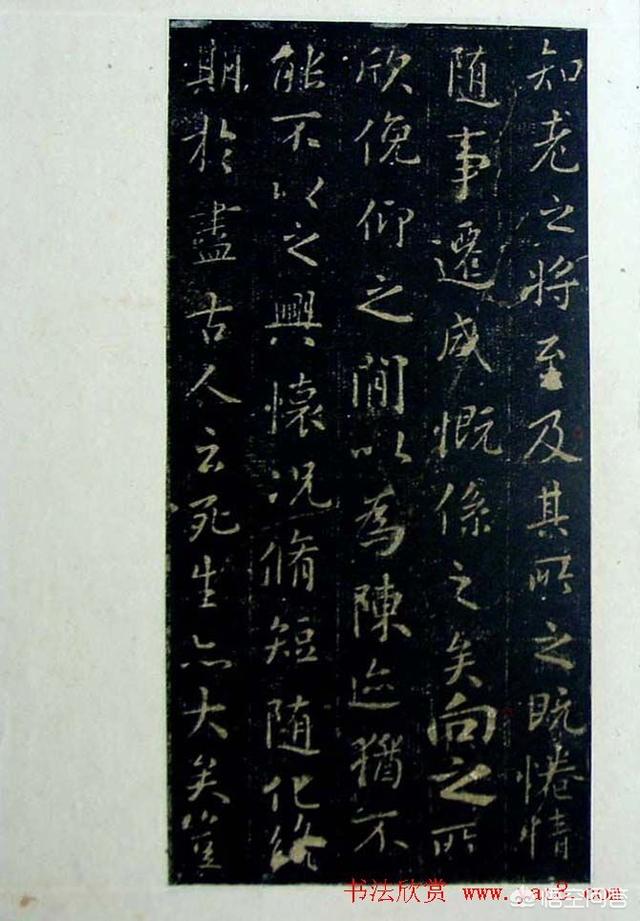 知老之将至及其所之既惓情
随事遷感慨係之矣向之所
欣俛仰之間以為陳迹猶不
能不以之興懷況脩短随化終
期於盡古人云死生亦大矣豈
书法欣赏
悟空问答